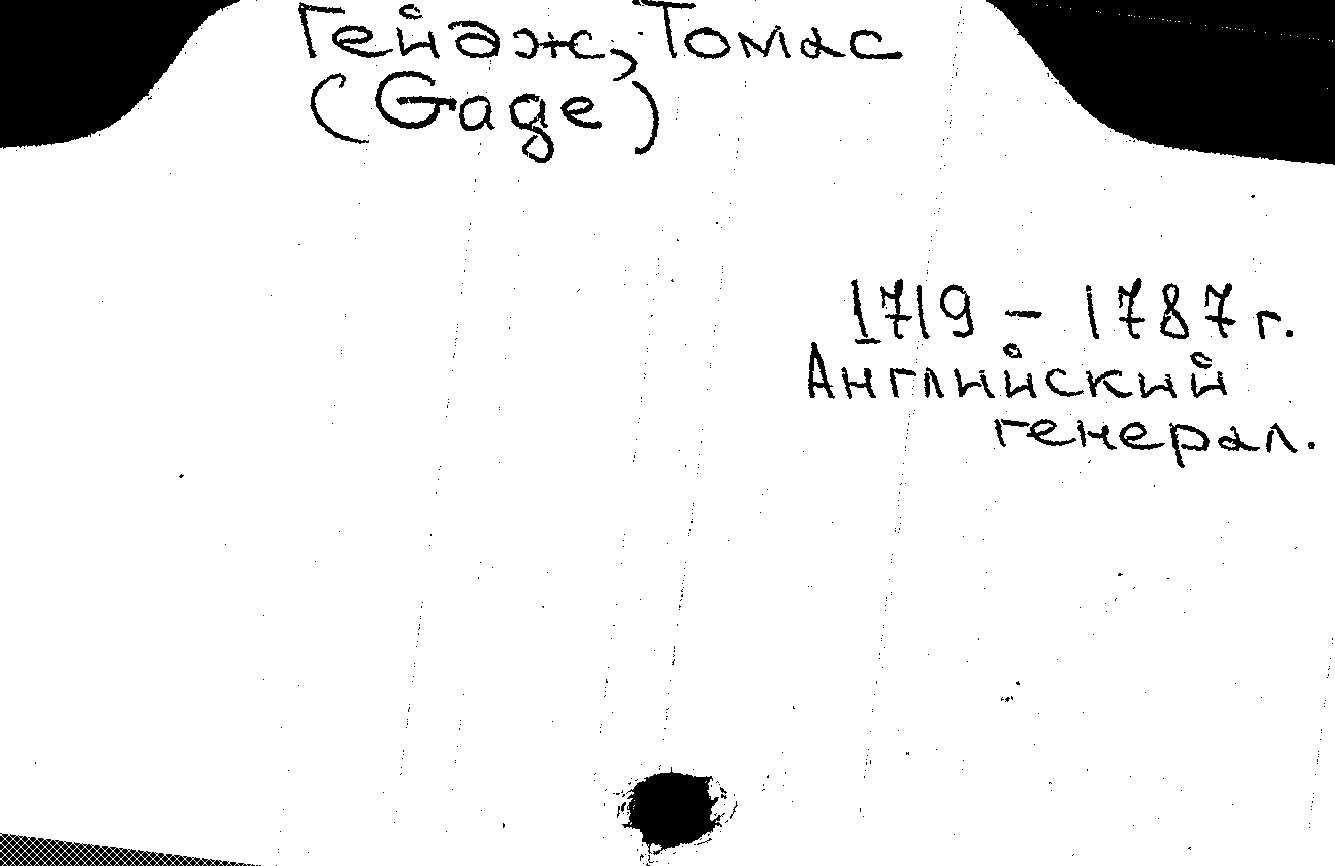 Гейдж, Томас
(Gage)
1719 – 1787 г.
Английский
генерал.